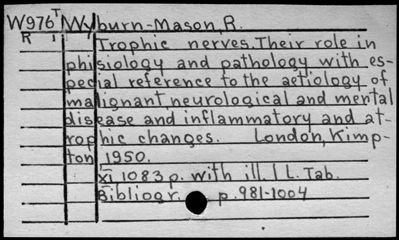 W976T Wyburn-Mason, R.
R I Trophic nerves. Their role in
phisiology and pathology with es-
pecial reference to the aetiology of
malignant, neurological and mental
disease and inflammatory and at-
rophic changes. London, Kimp-
ton 1950.
XI 1083 p. with ill. 1 L. Tab.
Bibliogr. p. 981-1004